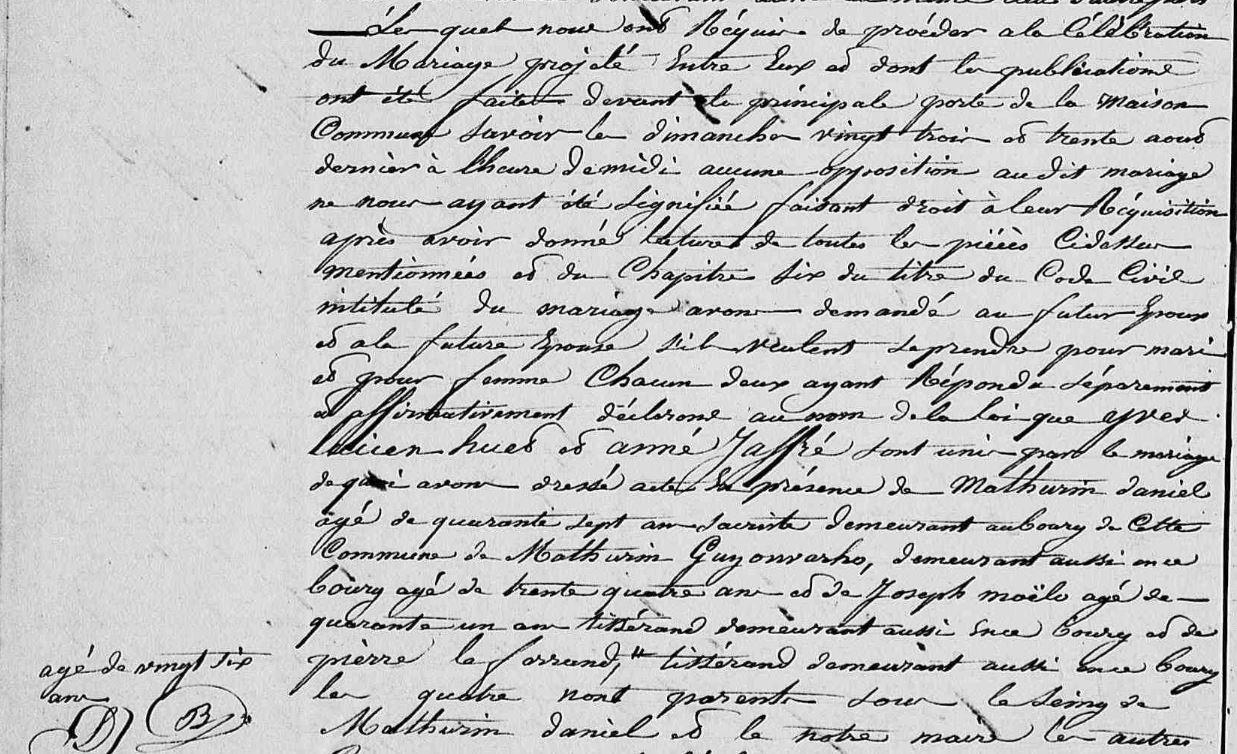 Les quels nous ont Réquis de procéder a la Célébration
du Mariage projeté Entre Eux et dont les publications
ont été faites devant la principale porte de la Maison
Commune Savoir les dimanches vingt trois et trente aout
dernier à l'heure de midi aucune opposition au dit mariage
ne nous ayant été Signifiée faisant droit à leur Réquisition
après avoir donné lecture de toutes les pièces Cidessus
mentionnées et du Chapitre Six du titre du Code Civil
intitulé du mariage avons demandé au futur Epoux
et a la future Epouse s'ils veulent se prendre pour mari
et pour femme Chacun deux ayant Répondu Séparement
et affirmativement déclarons au nom de la Loi que Yves
lucien hued et anné Jaffré sont unis par le mariage
de quoi avons dressé acte En présence de Mathurin daniel
agé de quarante sept ans sacriste demeurant au bourg de Cette
Commune de Mathurin Guyonvarho, demeurant aussi en ce
bourg agé de trente quatre ans et de Joseph moëlo agé de
quarante un ans tissérand demeurant aussi En ce bourg et de
pièrre le forrand, " tissérand demeurant aussi en ce bourg
agé de vingt six
ans
D B
les quatre nont parents sous le Seing de
Mathurin daniel et le notre maire les autres